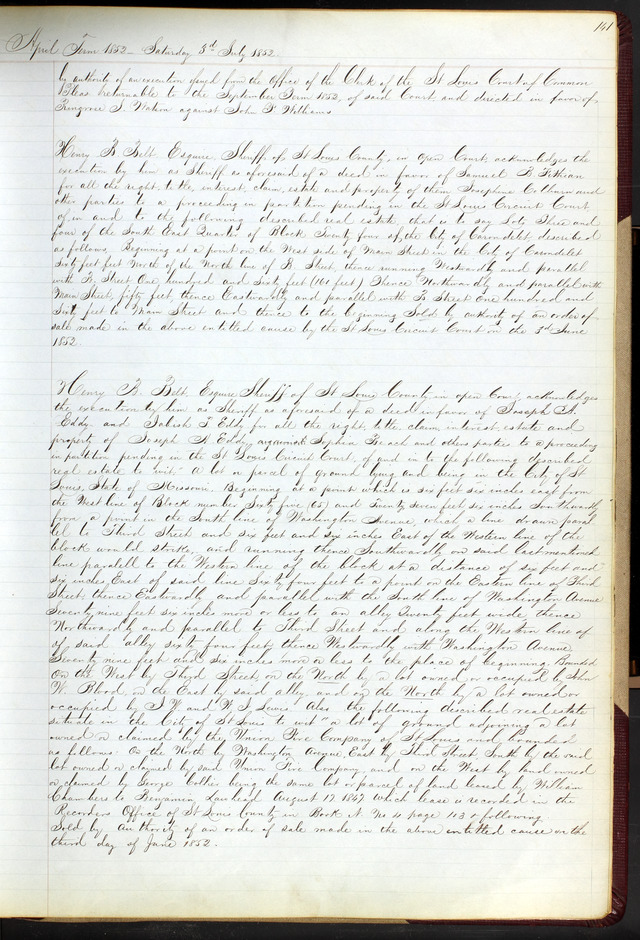 141
April Term 1852 – Saturday 3d July 1852.
by authority of an execution issued from the Office of the Clerk of the St Louis Court of Common
Pleas returnable to the September Term 1852, of said Court and directed in favor of
S. Watson against John P. Williams
Henry B. Belt Esquire Sheriff of St Louis County, in open Court, acknowledges the
execution by him as Sheriff as aforesaid of a deed in favor of Samuel
for all the right, title, interest, claim, estate and property of them Josephine and
other parties to a proceeding in partition pending in the St Louis Circuit Court
of in and to the following described real estate that is to say Lots Three and
four of the South East Quarter of Block Twenty four of the City of Carondelet, described
as follows, Beginning at a point on the West side of Main Street in the City of Carondelet
Sixty feet feet North of the North line of Street, thence running Westwardly and parallel
with Street One hundred and Sixty feet (160 feet) Thence Northwardly and parallel with
Main Street, fifty feet, thence Eastwardly and parallel with Street One hundred and
Sixty feet to Main Street and thence to the beginning Sold by authority of an order of
sale made in the above entitled cause by the St Louis Circuit Court on the 3d June
1852.
Henry B. Belt Esquire Sheriff of St Louis County in open Court, acknowledges
the execution by him as Sheriff as aforesaid of a deed in favor of Joseph A.
Eddy and T. Eddy for all the right, title, claim, interest, estate and
property of Joseph A Eddy, against Sophia Beach and others parties to a proceeding
in partition pending in the St Louis Circuit Court, of and in to the following described
real estate to wit: A lot or parcel of ground lying and being in the City of St
Louis, State of Missouri. Beginning at a point which is six feet six inches east from
the West line of Block number Sixty five (65) and Twenty seven feet six inches Southwardly
from a point in the South line of Washington Avenue, which a line drawn paral
lel to Third Street and six feet and six inches East of the Western line of the
block would strike, and running thence Southwardly on said last mentioned
line parallel to the Western line of the block at a distance of six feet and
six inches East of said line Sixty four feet to a point on the Eastern line of Third
Street, thence Eastwardly and parallel with the South line of Washington Avenue
Seventy nine feet six inches more or less to an alley Twenty feet wide, thence
Northwardly and parallel to Third Street and along the Western line of
of said alley sixty four feet, thence Westwardly with Washington Avenue
Seventy nine feet and six inches more or less to the place of beginning, Bounded
On the West by Third Street, on the North by a lot owned or occupied by John
W. Blood, on the East by said alley, and on the North by a lot owned or
occupied by J W and W J Lewis. Also the following described real estate
situate in the City of St Louis to wit "a lot of ground adjoining a lot
owned or claimed by the Union Fire Company of St Louis and bounded
as follows: On the North by Washington Avenue, East by Third Street, South by the said
lot owned or claimed by said Union Fire Company, and on the West by land owned
or claimed by George Collier being the same lot or parcel of land leased by William
Chambers to Benjamin August 17 1847 which lease is recorded in the
Recorders Office of St Louis County in Book N. No 4 page 103 & following
Sold by Authority of an order of sale made in the above entitled cause on the
third day of June 1852.